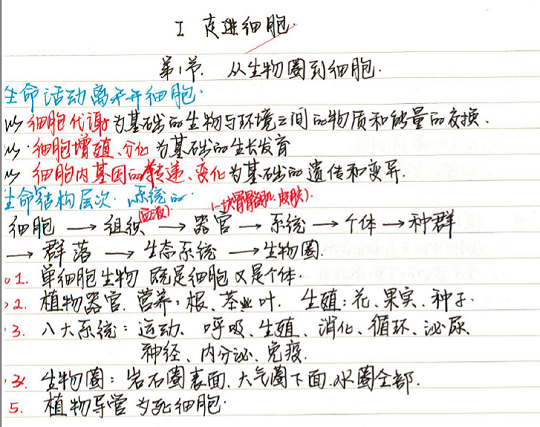 I 走进细胞.
第1节. 从生物圈到细胞.
生命活动离不开细胞.
以细胞代谢为基础的生物与环境之间的物质和能量的交换.
以细胞增殖、分化为基础的生长发育
以细胞内基因的传递、变化为基础的遗传和变异.
生命结构层次. 系统的
(血液) (一块骨骼肌. 皮肤)
细胞 → 组织 → 器官 → 系统 → 个体 → 种群
→ 群落 → 生态系统 → 生物圈.
1. 单细胞生物 既是细胞又是个体.
2. 植物器官. 营养:根、茎、叶. 生殖:花、果实、种子.
3. 八大系统: 运动、呼吸、生殖、消化、循环、泌尿、
神经、内分泌、免疫.
生物圈: 岩石圈表面. 大气圈下面. 水圈全部.
5. 植物导管 为死细胞.